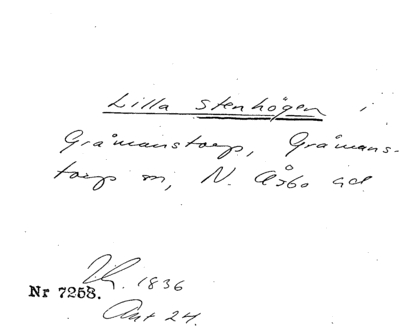 Lilla Stenhögen i
Gråmanstorp, Gråmans-
torp sn, N. Åsbo hd
Th. 1836
Nr 7258.
Ant 24.